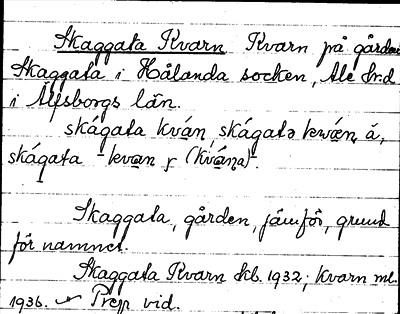 Skaggata Kvarn Kvarn på gården
Skaggata i Hålanda socken, Ale hrd
i Älfsborgs län.
skágata kván, skágatə kwæn, á,
skágata -kvæn f (kvána).
Skaggata, gården, jämför, grund
för namnet.
Skaggata Kvarn Kb. 1932; Kvarn ml.
1936. Prejp vid.